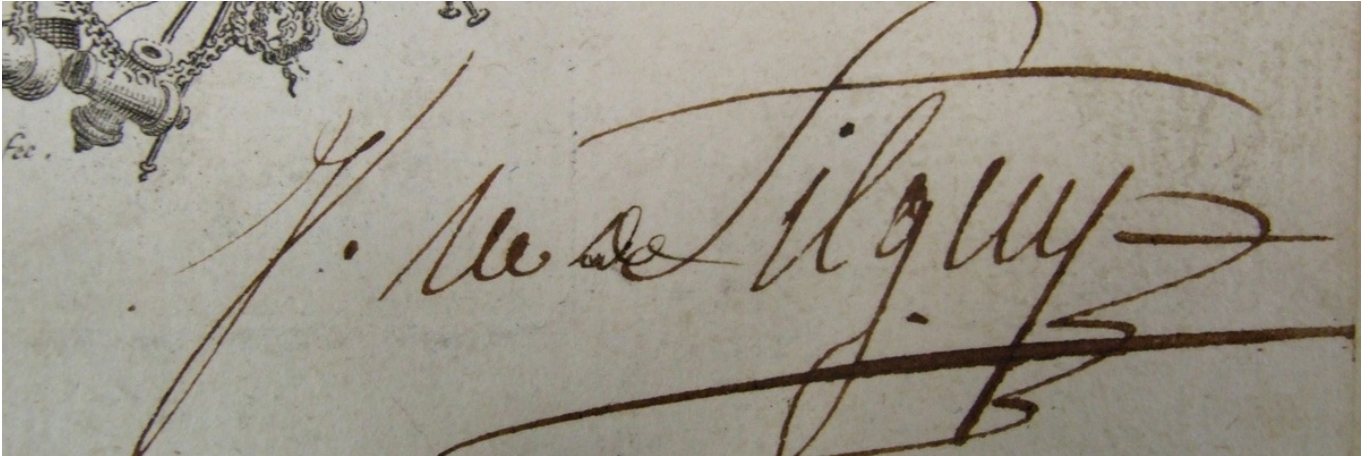 fec.
J. M de Silguy